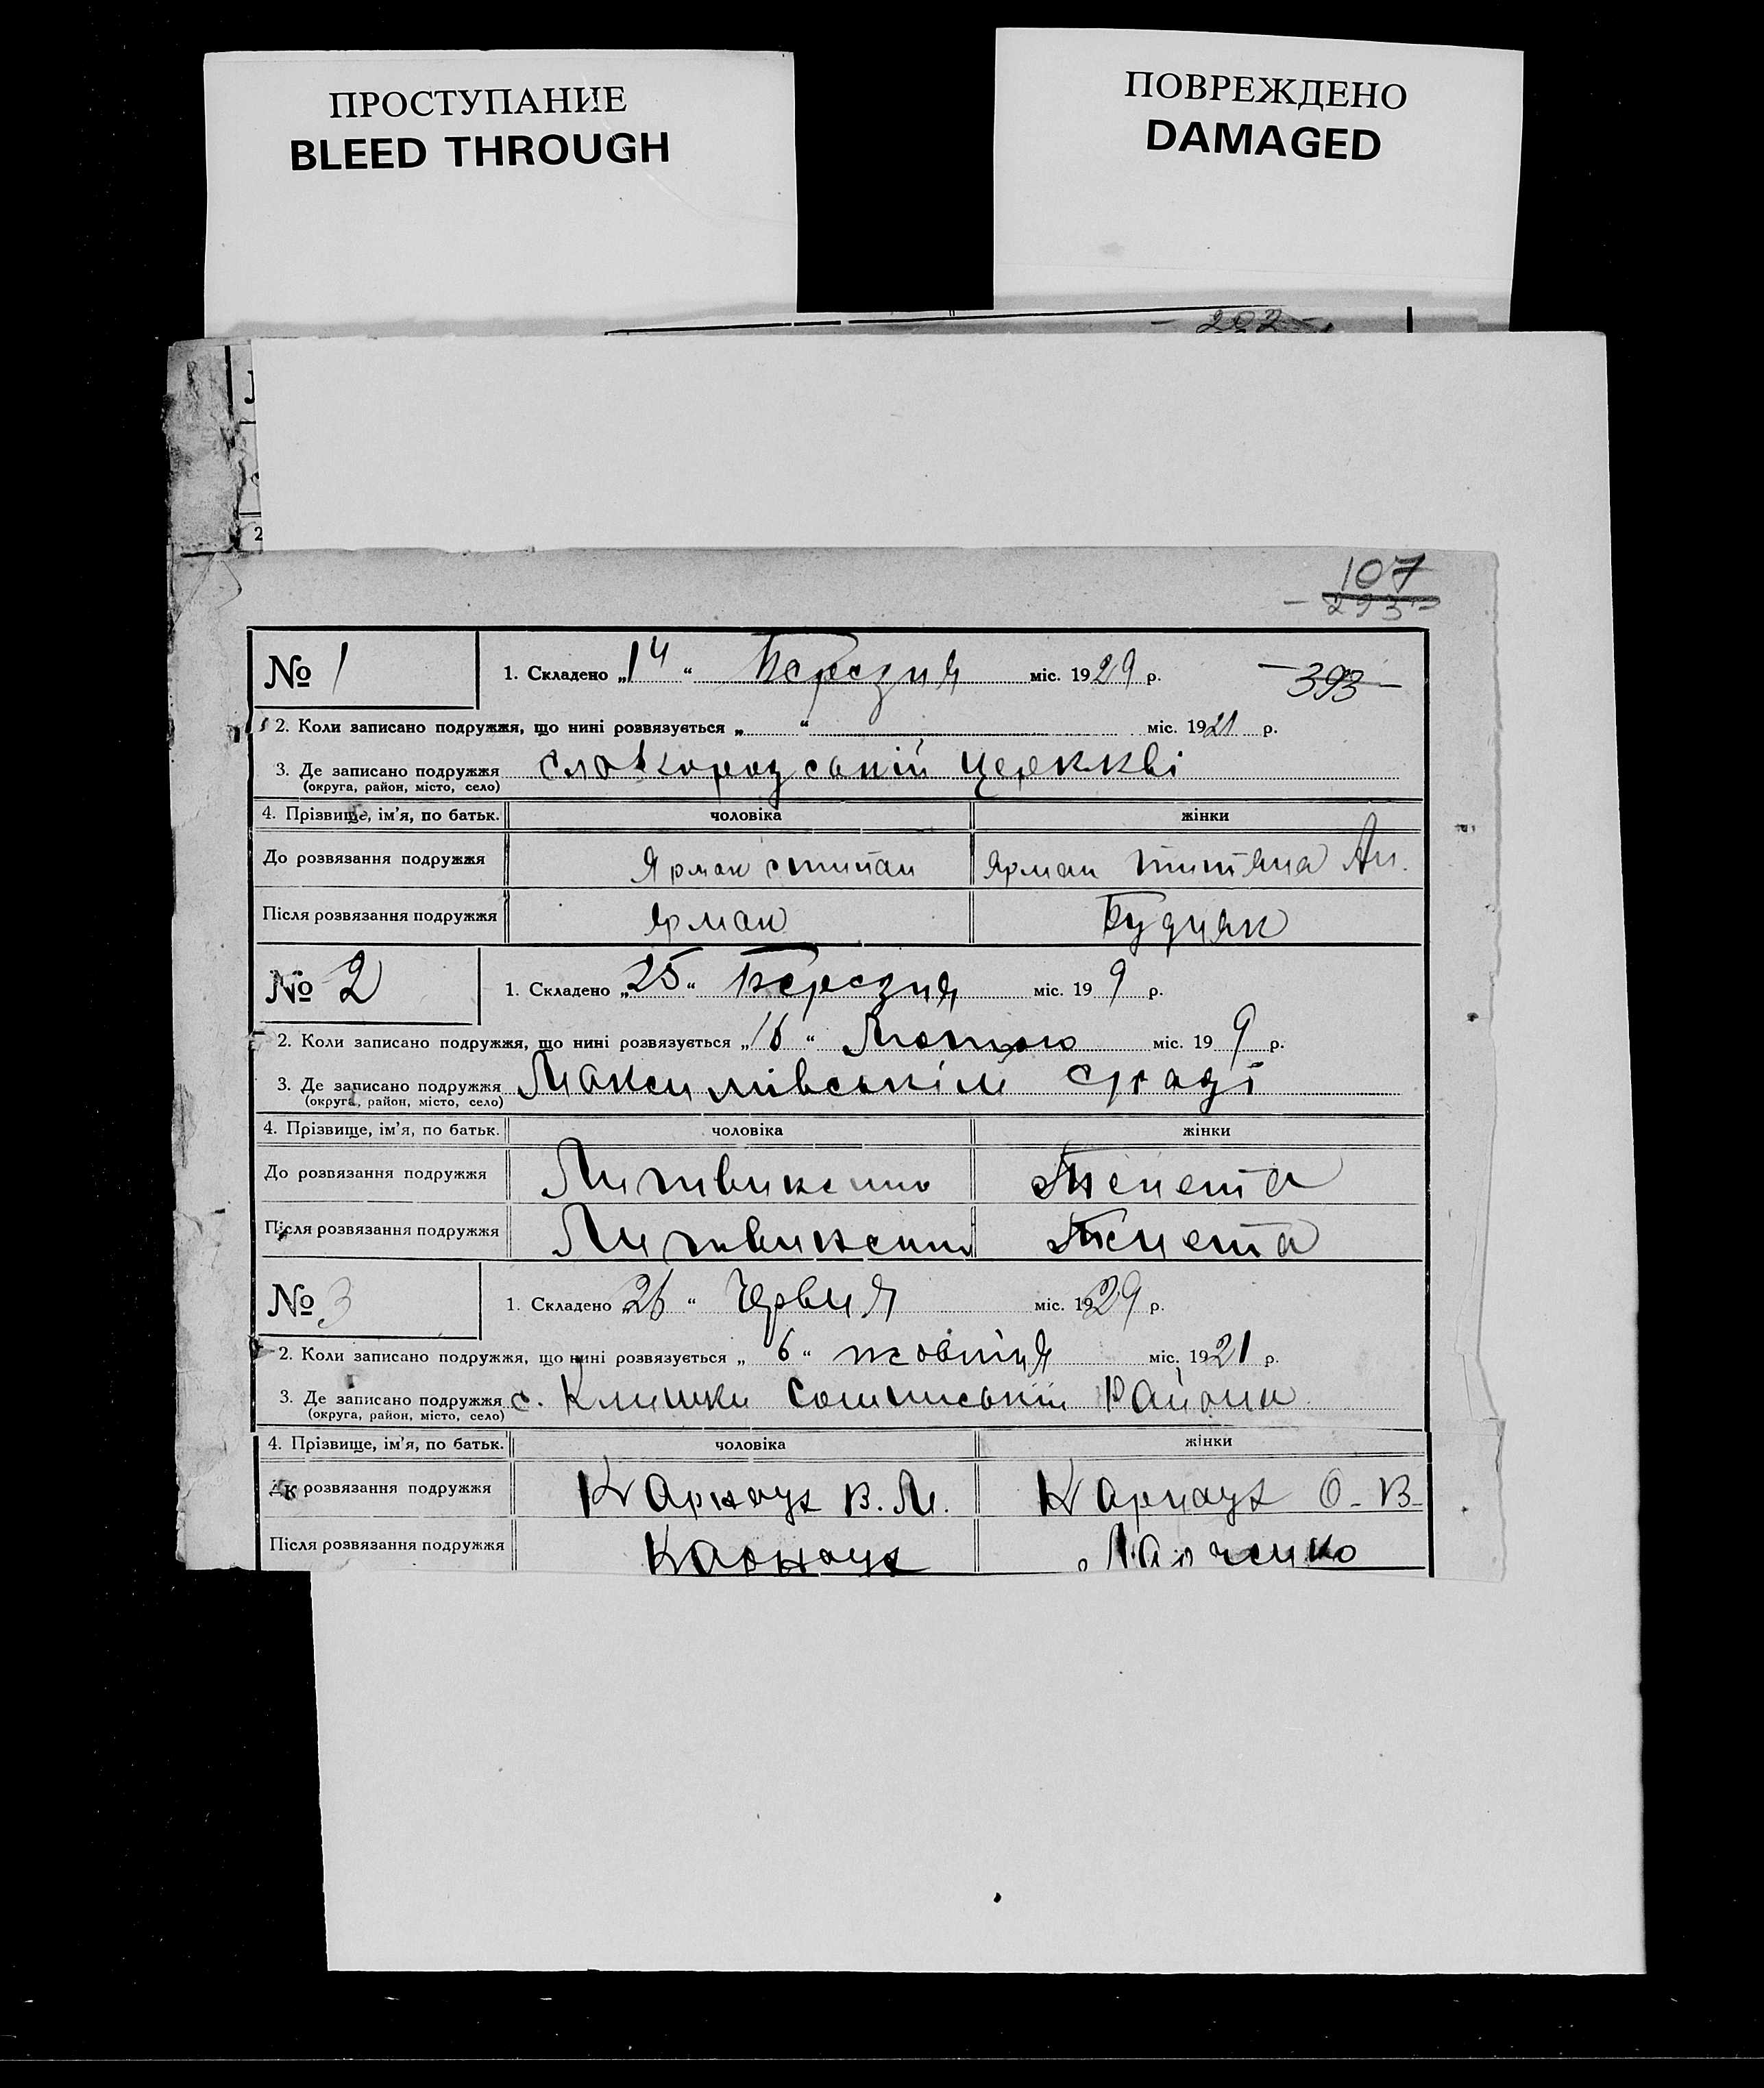 ПРОСТУПАНИЕ
BLEED THROUGH
ПОВРЕЖДЕНО
DAMAGED
107
293
№ 1
1. Складено „14“ Березня міс. 1929 р.
393
2. Коли записано подружжя, що нині розвязується „ “ міс. 1921 р.
3. Де записано подружжя церккві
(округа, район, місто, село)
4. Прізвище, ім'я, по батьк. чоловіка жінки
До розвязання подружжя Ярмак Ярмак Ан.
Після розвязання подружжя Ярмак Будняк
№ 2
1. Складено „25“ Березня міс. 19 9 р.
2. Коли записано подружжя, що нині розвязується „16“ Лютого міс. 19 9 р.
3. Де записано подружжя
(округа, район, місто, село)
4. Прізвище, ім'я, по батьк. чоловіка жінки
До розвязання подружжя Литвиненко Тенета
Після розвязання подружжя Литвиненко Тенета
№ 3
1. Складено „26“ Червня міс. 1929 р.
2. Коли записано подружжя, що нині розвязується „6“ жовтня міс. 1921 р.
3. Де записано подружжя с. Клишки Району
(округа, район, місто, село)
4. Прізвище, ім'я, по батьк. чоловіка жінки
До розвязання подружжя Карнаух В. М. Карнаух О. В.
Після розвязання подружжя Карнаух